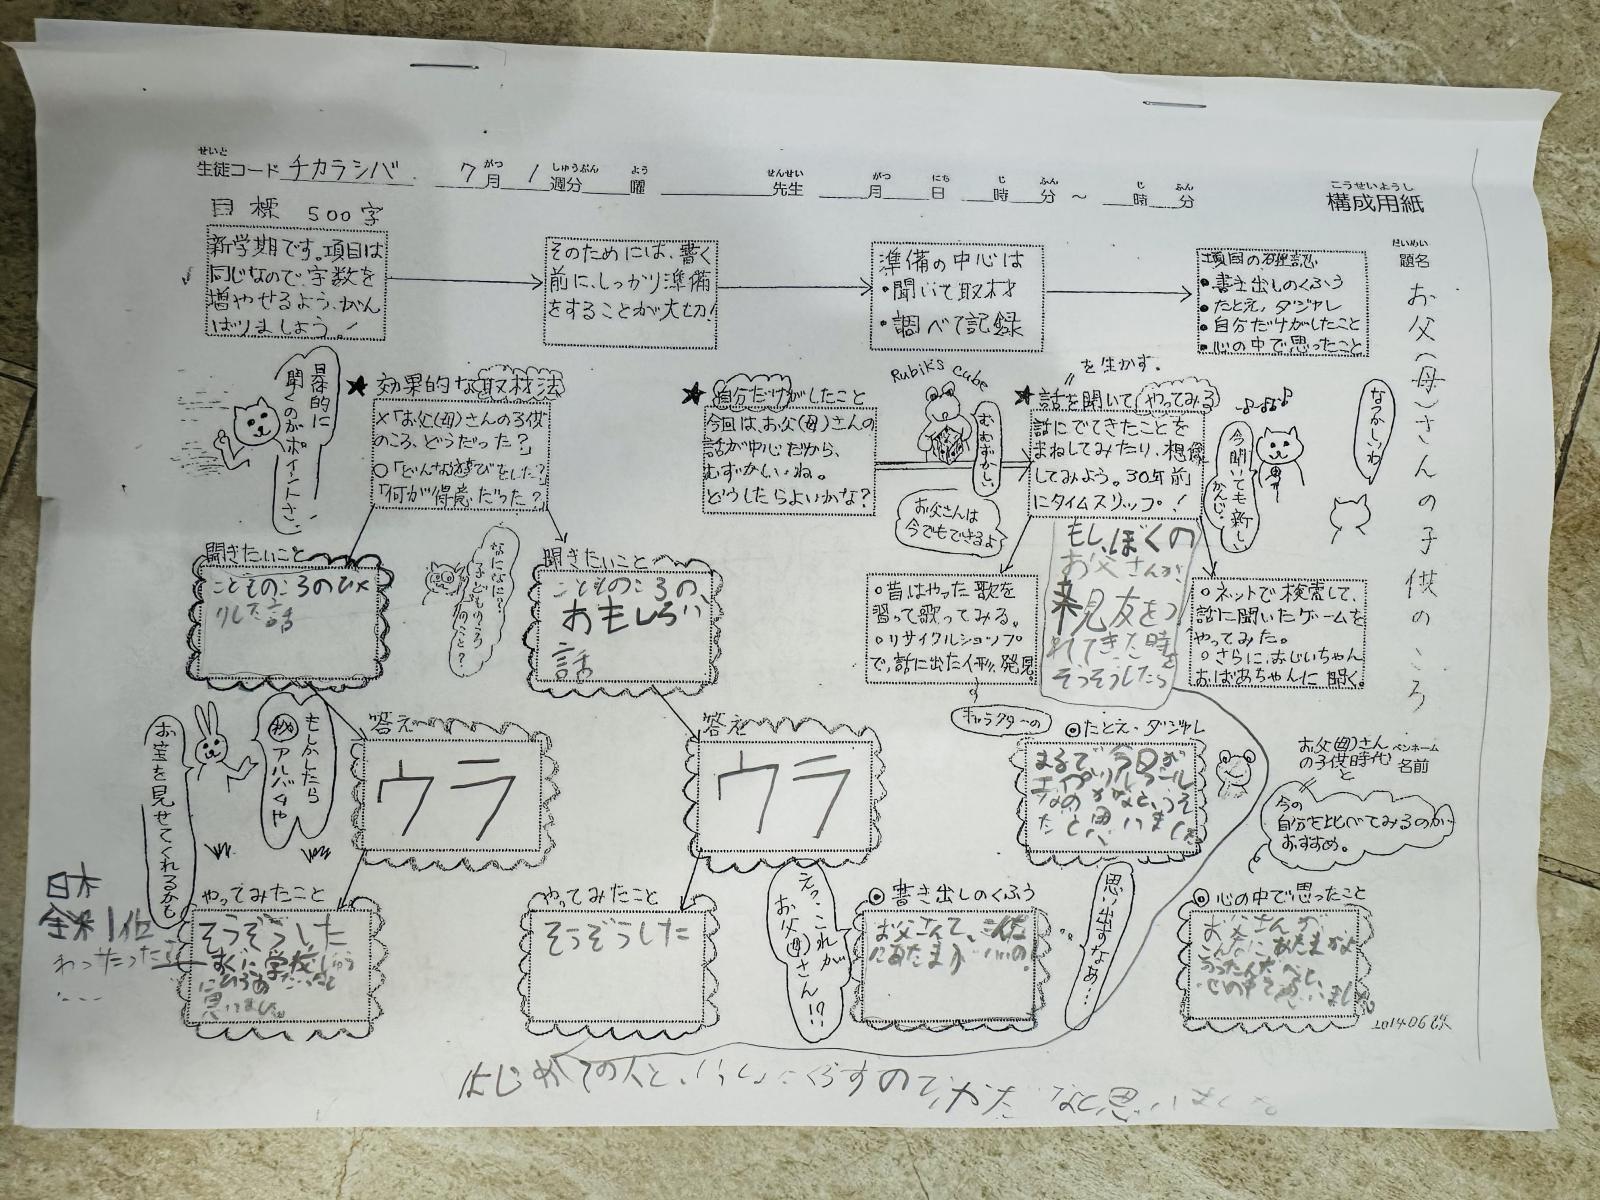 せいと
生徒コード チカラシバ 7月 1週分 曜 先生 月 日 時 分 ～ 時 分
がつ しゅうぶん よう せんせい がつ にち じ ふん じ ふん
こうせいようし
構成用紙
だいめい
題名
お父(母)さんの子供のころ
目標 500字
新学期です。項目は
同じなので、字数を
増やせるよう、がん
ばりましょう。!
そのためには、書く
前に、しっかり準備
をすることが大切!
準備の中心は
・聞いて取材
・調べて記録
項目の確認
・書き出しのくふう
・たとえ，ダジャレ
・自分だけがしたこと
・心の中で思ったこと
具体的に
聞くのがポイントさ。
★効果的な取材法
×「お父(母)さんの子供
のころ、どうだった?」
○「どんな遊びをした?」
「何が得意だった?」
★自分だけがしたこと
今回は、お父(母)さんの
話が中心だから、
むずかしいね。
どうしたらよいかな?
Rubik's Cube
むむずかしい
お父さんは
今でもできるよ
を生かす。
★話を聞いてやってみる
話にでてきたことを
まねしてみたり、想像
してみよう。30年前
にタイムスリップ!
今聞いても新しい
かんじ。
なつかしいわ
聞きたいこと
こどものころのびっく
りした話
なになに?
子どものころ
のこと?
聞きたいこと
こどものころの、
おもしろい
話
○昔はやった歌を
習って歌ってみる。
○リサイクルショップ
で、話に出た人形、発見
キャラクターの
もし、ぼくの
お父さんが、
れてきた時を
そうぞうしたら
○ネットで検索して、
話に聞いたゲームを
やってみた。
○さらに、おじいちゃん
おばあちゃんに聞く。
もしかしたら
㊙アルバムや
お宝を見せてくれるかも
答え
ウラ
答え
ウラ
◎たとえ・ダジャレ
まるで、今日が
エイプリルフール
なのかなというそ
だと思いました。
お父(母)さん
の子供時代
と
ペンネーム
名前
今の
自分を比べてみるのが、
おすすめ。
日本
全米1位
やってみたこと
そうぞうした
やってみたこと
そうぞうした
えっ、これが
お父(母)さん!?
◎書き出しのくふう
お父さんて、こんな
にあたまがいいの。
思い出すなぁ…
◎心の中で思ったこと
お父さんが
こんなにあたまがよ
心の中で思いました。
はじめての人と、いっしょにくらすので、